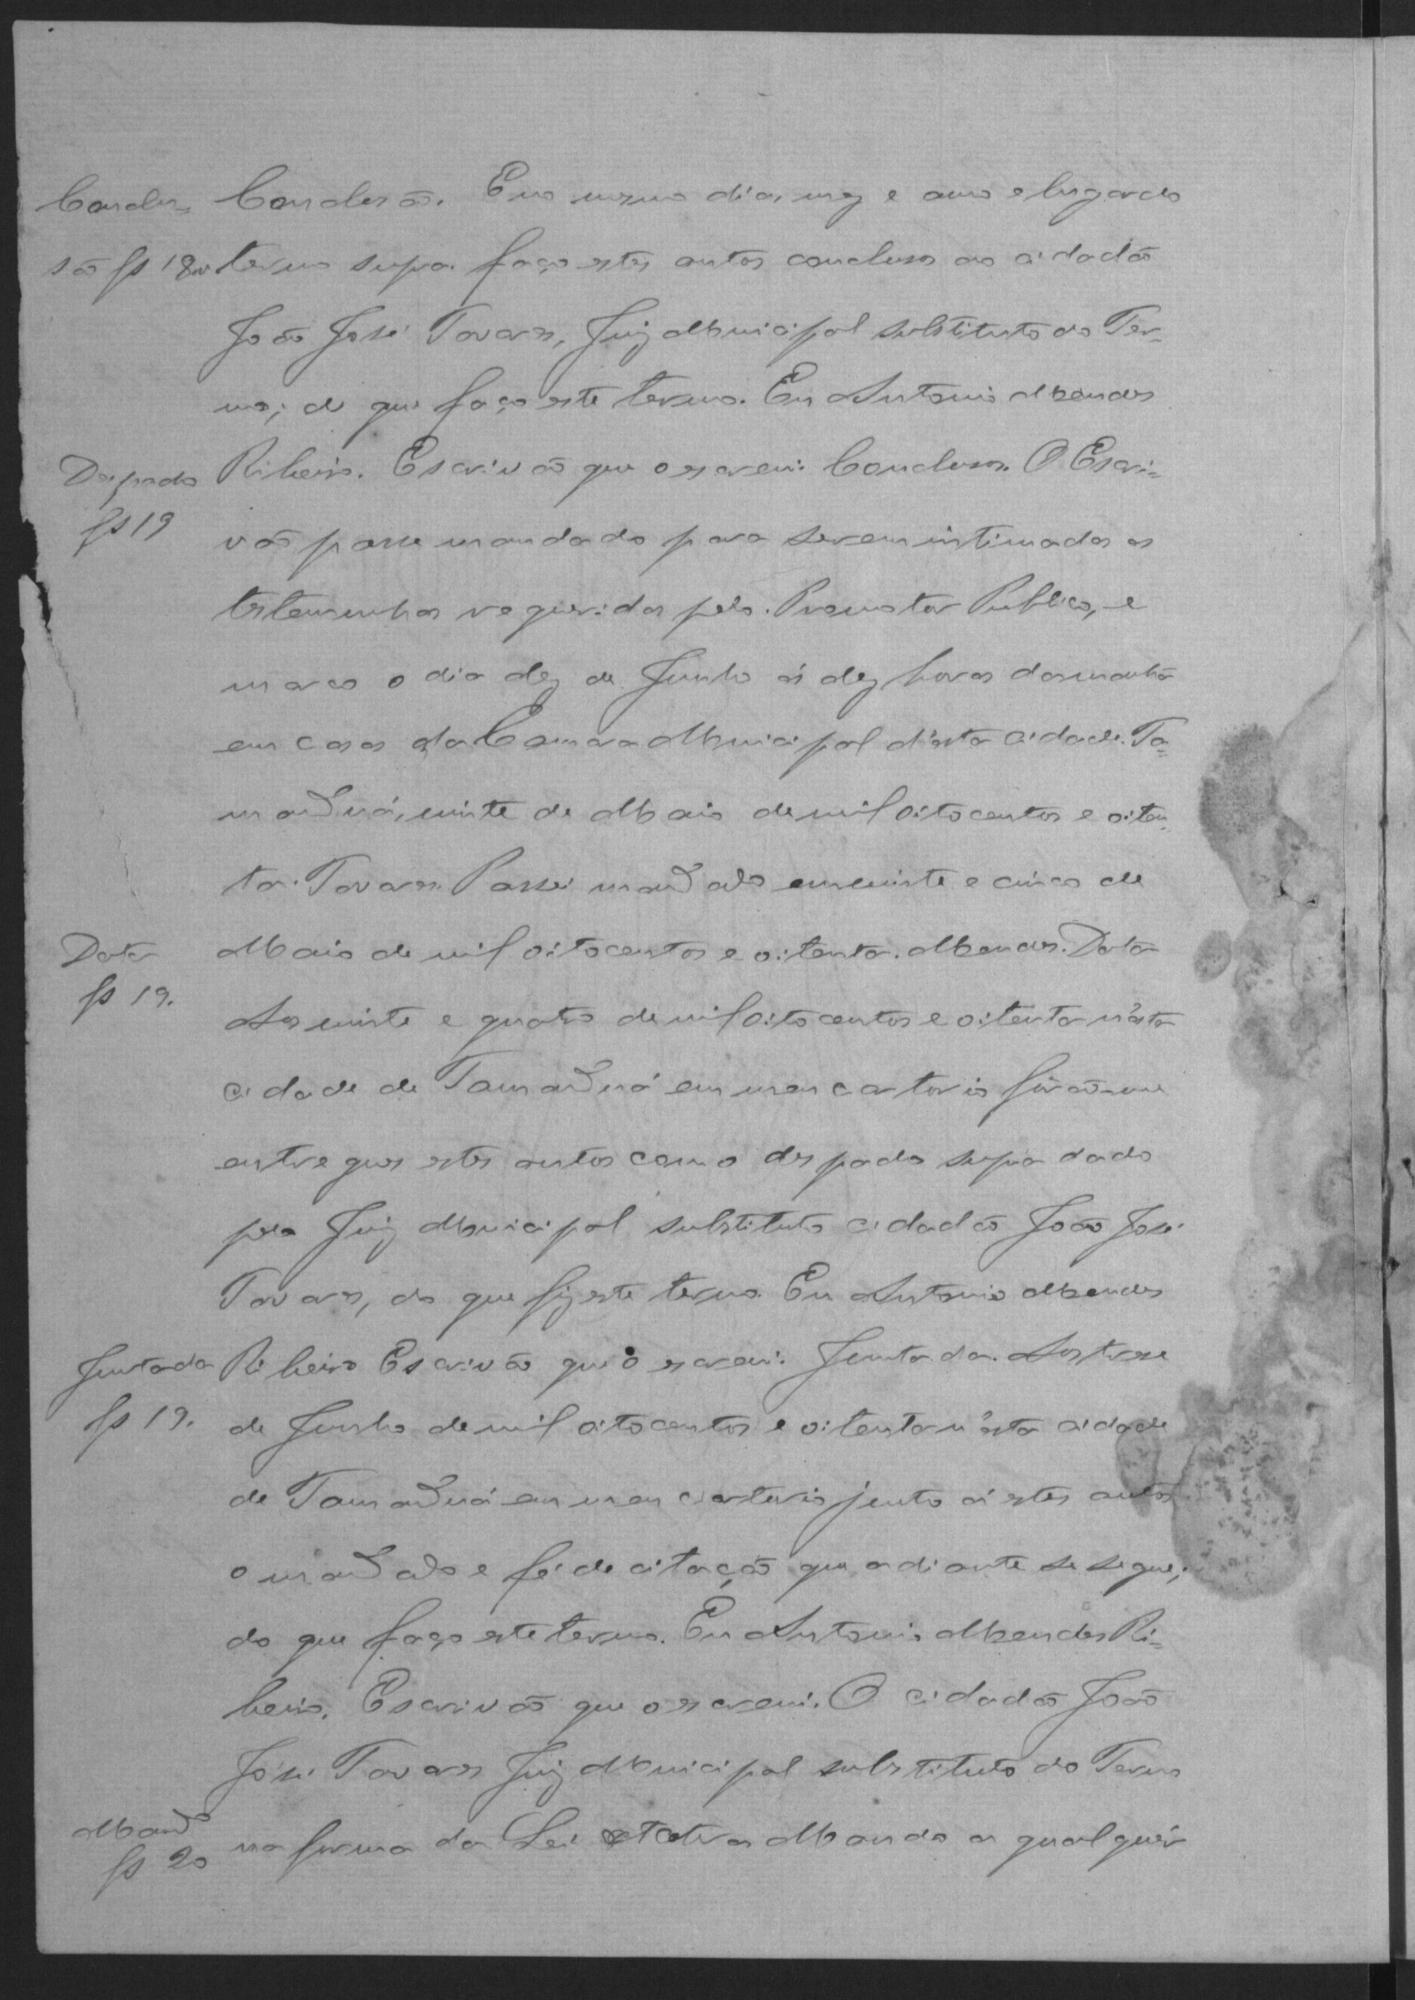 Conclu=
são fs 18v
Conclusão. E no mesmo dia, mez e anno e lugar do
termo supra faço estes autos conclusos ao cidadão
João José Tavares, Juiz Municipal substituto do Ter=
mo; do que faço este termo. Eu Antonio Mendes
Despacho
fs 19
Ribeiro. Escrivão que o escrevi. Conclusos. O Escri=
vão passe mandado para serem intimadas as
testemunhas requeridas pelo Promotor Publico, e
marco o dia dez de Junho ás dez horas da manhã
em casa da Camara Municipal d'esta cidade. Ta=
manduá, vinte de Maio de mil oitocentos e oiten=
ta. Tavares. Passei mandado em vinte e cinco de
Data
fs 19.
Maio de mil oitocentos e oitenta. Mendes. Data
Aos vinte e quatro de mil oitocentos e oitenta n'esta
cidade de Tamanduá em meu cartorio forão-me
entregues estes autos com o despacho supra dado
pelo Juiz Municipal substituto cidadão João José
Tavares, do que fiz este termo. Eu Antonio Mendes
Juntada
fs 19.
Ribeiro Escrivão que o escrevi. Juntada. Aos treze
de Junho de mil oitocentos e oitenta n'esta cidade
de Tamanduá em meu cartorio junto á estes autos
o mandado e fé de citação que adiante se segue;
do que faço este termo. Eu Antonio Mendes Ri=
beiro. Escrivão que o escrevi. O cidadão João
José Tavares Juiz Municipal substituto do Termo
Mando
fs 20
na forma da Lei etcetera Mando a qualquer